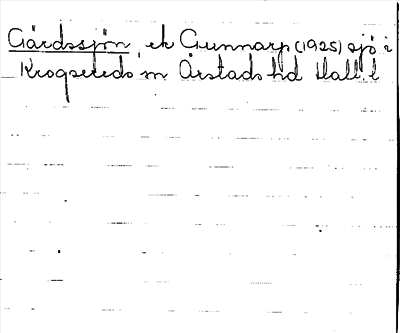 Gårdssjön, ek Gunnarp (1925) sjö i
Krogsereds sn Årstads hd Hall. l